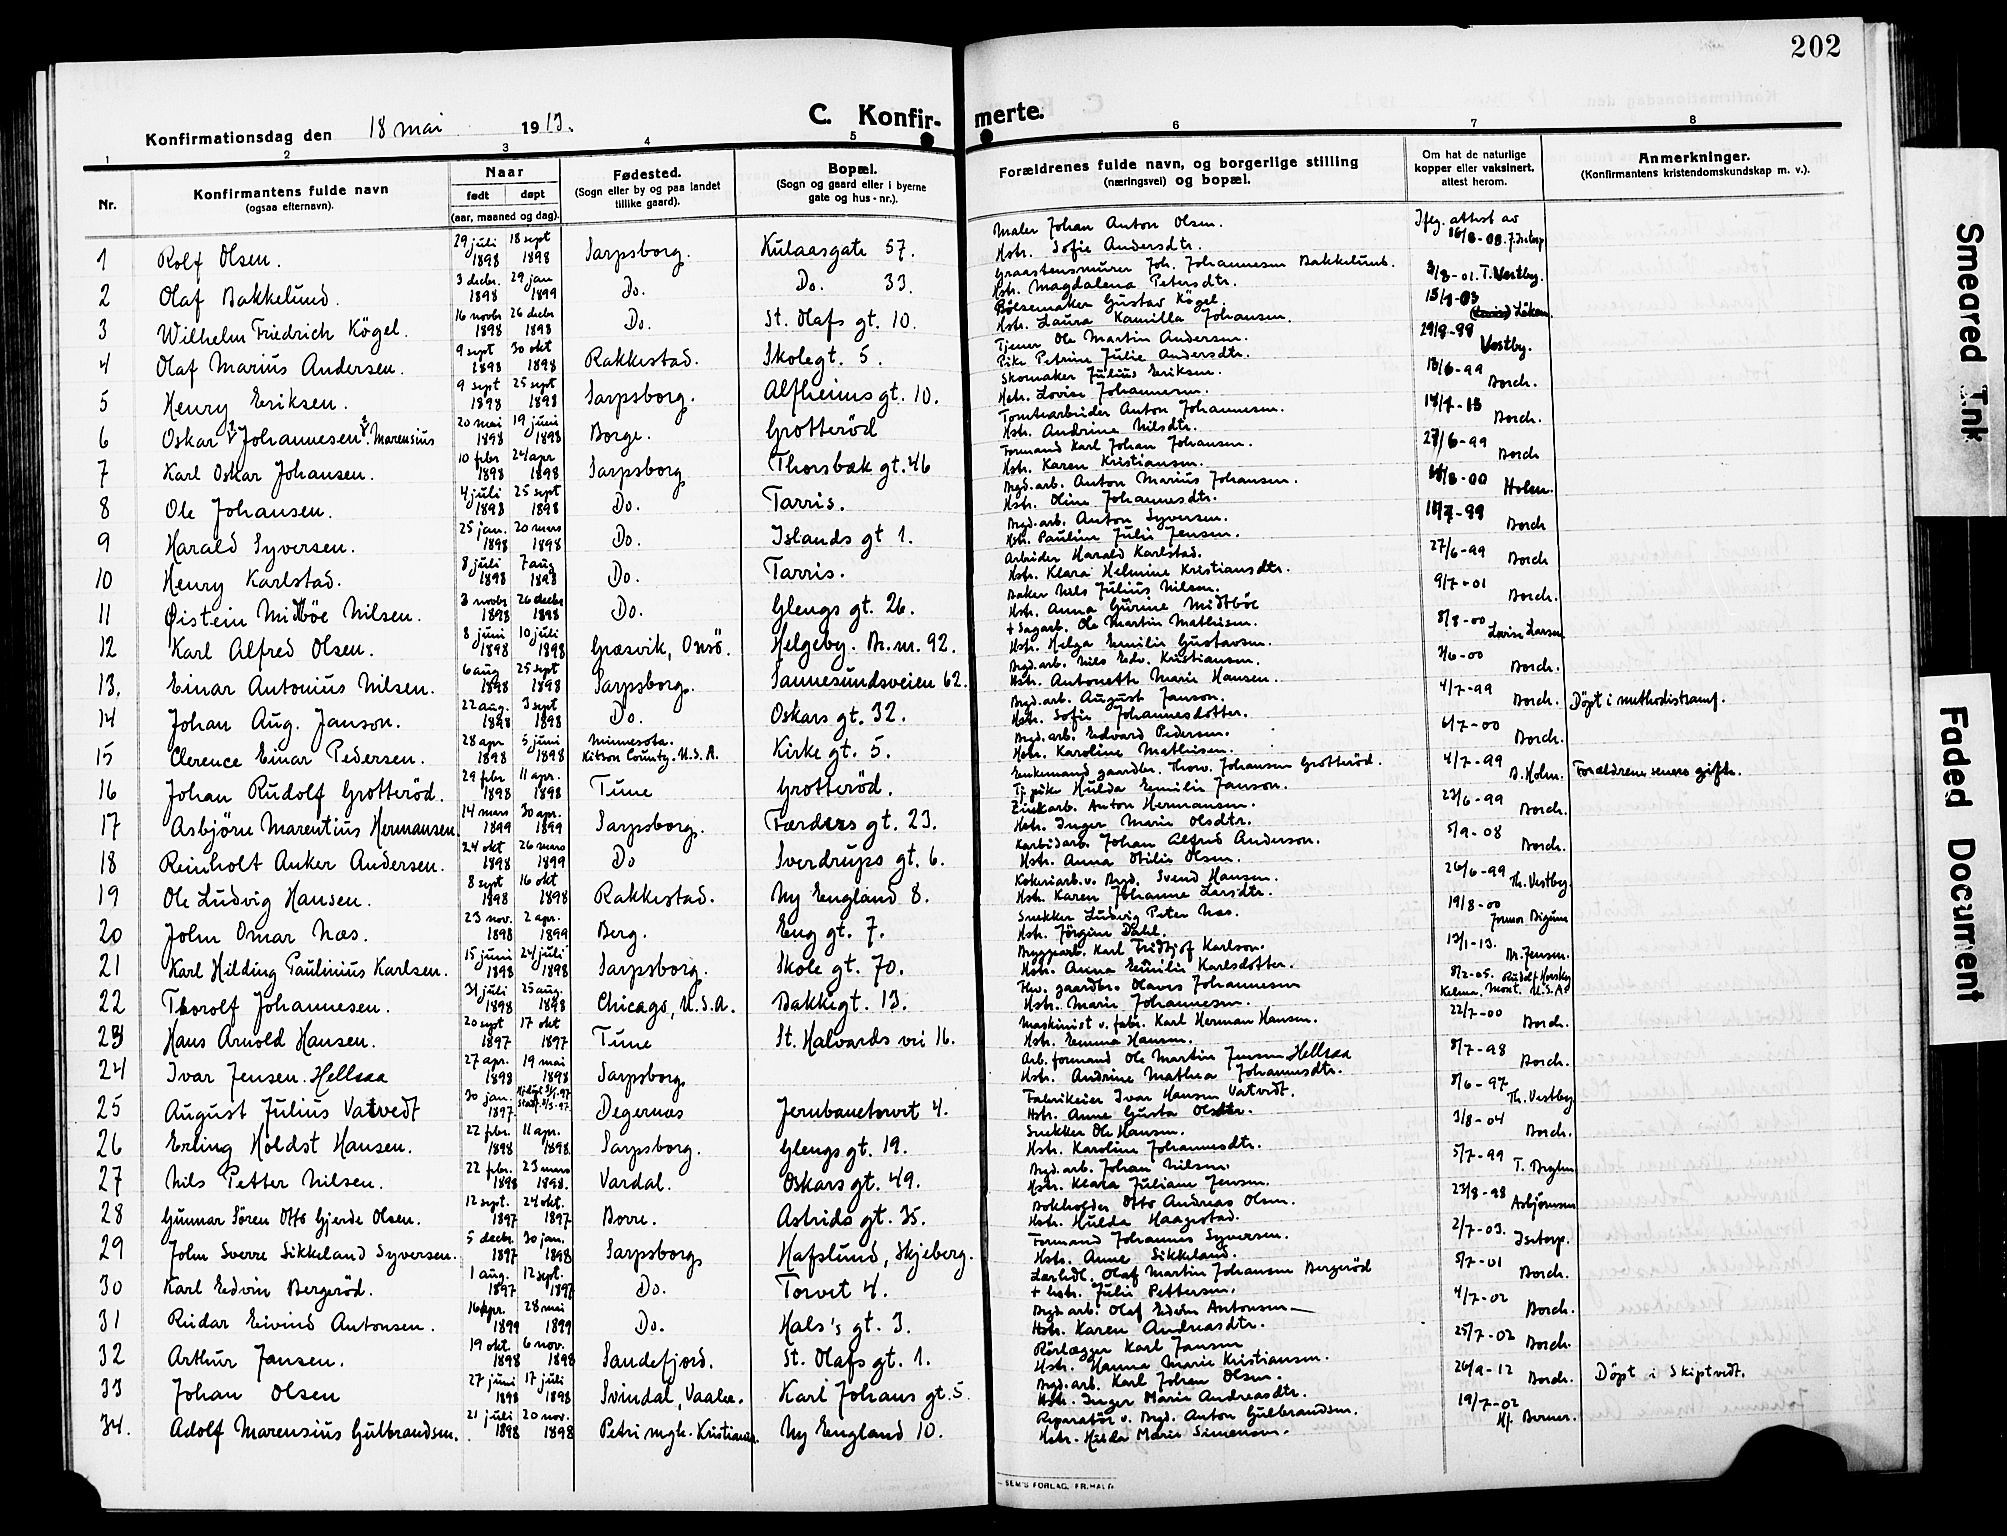 202
Konfirmationsdag den 18 mai 1913.
C. Konfirmerte.
1 2 3 4 5 6 7 8
Nr.
Konfirmantens fulde navn
(ogsaa efternavn).
Naar
født døpt
(aar, maaned og dag).
Fødested.
(Sogn eller by og paa landet
tillike gaard).
Bopæl.
(Sogn og gaard eller i byerne
gate og hus-nr.).
Forældrenes fulde navn, og borgerlige stilling
(næringsvei) og bopæl.
Om hat de naturlige
kopper eller vaksinert,
attest herom.
Anmerkninger.
(Konfirmantens kristendomskundskap m. v.).
1 Rolf Olsen. 29 juli 1898 18 sept 1898 Sarpsborg. Kulaasgate 57. Maler Johan Anton Olsen. Hstr. Sofie Andersdtr. Ifłg. attest av
2 Olaf Bakkelund. 3 decbr. 1898 29 jan 1899 Do. Do. 33. Graastensmurer Joh. Johannesen Bakkelund. Hstr. Magdalena Petersdtr. 3/8-01. T. Vestby.
3 Wilhelm Friedrich Kögel. 16 novbr 1898 26 decbr 1898 Do. St. Olafs gt. 10. Pølsemaker Gustav Kögel. Hstr. Laura Kamilla Johansen. Løken.
4 Olaf Marius Andersen. 9 sept 1898 30 okt 1898 Rakkestad. Skolegt. 5. Tjener Ole Martin Andersen. Pike Petrine Julie Andersdtr. 29/8-98 Vestby.
5 Henry Eriksen. 9 sept 1898 25 sept 1898 Sarpsborg. Alfheims gt. 10. Skomaker Julius Eriksen. Hstr. Lovise Johannesen. 13/6-99 Borch.
6 Oskar Johannesen. Marensius 20 mai 1898 19 juni 1898 Borge. Grotterød Tomtearbeider Anton Johannesen. Hstr. Andrine Nilsdtr. 14/7-13 Borch.
7 Karl Oskar Johansen. 10 febr 1898 24 apr 1898 Sarpsborg Thorsbæk gt. 46 Formand Karl Johan Johansen. Hstr. Karen Kristiansen. 27/6-99 Borch
8 Ole Johansen. 4 juli 1898 25 sept 1898 Do. Tarris. Brgd. arb. Anton Marius Johansen. Hstr. Oline Johannesdtr. Holm.
9 Harald Syversen. 25 jan. 1898 20 mars 1898 Do. Islands gt 1. Brgd. arb. Anton Syversen. Hstr. Pauline Julie Jensen. Borch
10 Henry Karlstad. 8 juli 1898 7 aug 1898 Do. Tarris. Arbeider Harald Karlstad. Hstr. Klara Helmine Kristiansdtr. 27/6-99 Borch
11 Øistein Midtbøe Nilsen. 3 novbr 1898 26 decbr 1898 Do. Glengs gt. 26. Baker Nils Julius Nilsen. Hstr. Anna Gurine Midtbøe 9/7-01 Borch.
12 Karl Alfred Olsen. 8 juni 1898 10 juli 1898 Græsvik, Onsø. Helgeby. Br. nr. 92. + Sagarb. Ole Martin Mathisen. Hstr. Helga Emilie Gustavsen. 8/8-00 Lovise Larsen
13. Einar Antonius Nilsen. 6 aug 1898 25 sept 1898 Sarpsborg. Sannesundsveien 62. Brgd. arb. Nils Edv. Kristiansen. Hstr. Antonette Marie Hansen. Borch.
14 Johan Aug. Janson. 22 aug. 1898 3 sept 1898 Do. Oskars gt. 32. Brgd. arb. August Janson. Hstr. Sofie Johannesdotter. 4/7-99 Borch. Døpt i methodistsamf.
15 Clerence Einar Pedersen. 28 apr 1898 5 juni 1898 Minnesota. Kitson County. U.S.A. Kirke gt. 5. Brgd. arb. Edvard Pedersen. Hstr. Karoline Mathisen. 6/7-00 Borch.
16 Johan Rudolf Grotterød. 29 febr 1898 11 apr. 1898 Tune Grotterød. Enkemand gaardbr. Thorv. Johansen Grotterød. Tj. pike Hulda Emilie Janson. 4/7-99 B. Holm. Forældrene senere gifte.
17 Asbjørn Marentius Hermansen. 14 mars 1899 30 apr. 1899 Sarpsborg. Færders gt. 23. Zinkarb. Anton Hermansen. Hstr. Inger Marie Olsdtr. 23/6-99 Borch.
18 Reinholt Anker Andersen. 24 okt 1898 26 mars 1899 Do Sverdrups gt. 6. Karbidarb. Johan Alfred Anderson. Hstr. Anna Otilie Olsen. 5/9-08 Borch.
19 Ole Ludvig Hansen. 8 sept 1898 16 okt 1898 Rakkestad. Ny England 8. Kokeriarb. v. Brgd. Svend Hansen. Hstr. Karen Johanne Larsdtr. 26/6-99 Th. Vestby.
20 John Omar Næs. 23 nov. 1898 2 apr. 1899 Berg. Eng gt. 7. Snekker Ludvig Peter Næs. Hstr. Jørgine Dahl. 19/8-00
21 Karl Hilding Paulinius Karlsen. 15 juni 1898 24 juli 1898 Sarpsborg. Skole gt. 70. Bryggearb. Karl Fridtjof Karlson. Hstr. Anna Emilie Karlsdotter. 13/1-13. Br. Jensen.
22 Thorolf Johannesen. 31 juli 1898 25 aug. 1898 Chicago, U.S.A. Bakkegt. 13. Fhv. gaardbr. Olaves Johannesen Hstr. Marie Johannesen. 8/2-05. Rudolf Horsky Kelma. Mont. U.S.A.
23 Hans Arnold Hansen. 20 sept 1897 17 okt 1897 Tune St. Halvards vei 16. Maskinist v. fabr. Karl Herman Hansen. Hstr. Emma Hansen. 22/7-00 Borch.
24 Ivar Jensen. Hellsaa 27 apr. 1898 19 mai 1898 Sarpsborg Arb. formand Ole Martin Jensen Hellsaa Hstr. Andrine Mathea Johannesdtr. 8/7-98 Borch.
25 August Julius Vatvedt 30 jan. 1897. Degernæs Jernbanetorvet 4. Fabrikeier Ivar Hansen Vatvedt. Hstr. Anne Gusta Olsdtr. 8/6-97 Th. Vestby
26 Erling Holdst Hansen. 22 febr. 1898 11 apr. 1898. Sarpsborg. Glengs gt. 19. Snekker Ole Hansen. Hstr. Karoline Johannesdtr. 3/8-04 Borch.
27 Nils Petter Nilsen. 22 febr. 1898 23 mars 1898. Vardal. Oskars gt. 49. Brgd. arb. Johan Nilsen. Hstr. Klara Juliane Jensen. 5/7-99
28 Gunnar Søren Otto Gjerde Olsen. 12 sept. 1897 24 okt. 1897 Borre. Astrids gt. 35. Bokholder Otto Andreas Olsen. Hstr. Hulda Haagestad. 23/8-98 Asbjørnsen
29 John Sverre Sikkeland Syversen. 5 decbr. 1897 30 jan. 1898 Sarpsborg Hafslund, Skjeberg. Formand Johannes Syversen. Hstr. Anne Sikkeland. 2/7-03. Istorp.
30 Karl Edvin Bergerød. 1 aug. 1897 12 sept. 1897 Do. Torvet 4. Lærhdl. Olaf Martin Johansen Bergerød + hstr. Julie Pettersen. 5/7-01 Borch.
31 Reidar Eivind Antonsen. 16 apr. 1899 28 mai 1899 Do. Hals's gt. 3. Brgd arb. Olaf Edvin Antonsen Hstr. Karen Andreasdtr. 4/7-02 Borch.
32 Arthur Jansen. 19 okt. 1898 6 nov. 1898 Sandefjord. St. Olafs gt. 1. Rørlægger Karl Jansen Hstr. Hanna Marie Kristiansen. 25/7-02 Borch.
33 Johan Olsen 27 juni 1898 17 juli 1898 Svindal, Vaaler. Karl Johans gt. 5 Brgd. arb. Karl Johan Olsen. Hstr. Inger Marie Andreasdtr. 26/9-12 Borch. Døpt i Skiptvedt.
34. Adolf Marensius Gulbrandsen. 21 juli 1898 20 nov. 1898 Petri mgh. Kristiania. Ny England 10. Reparatør v. Brgd. Anton Gulbrandsen. Hstr. Hilda Marie Simensen. 19/7-02 Hj. Berner.
SEM'S FORLAG, FR.HALD.
Smeared Ink
Faded Document